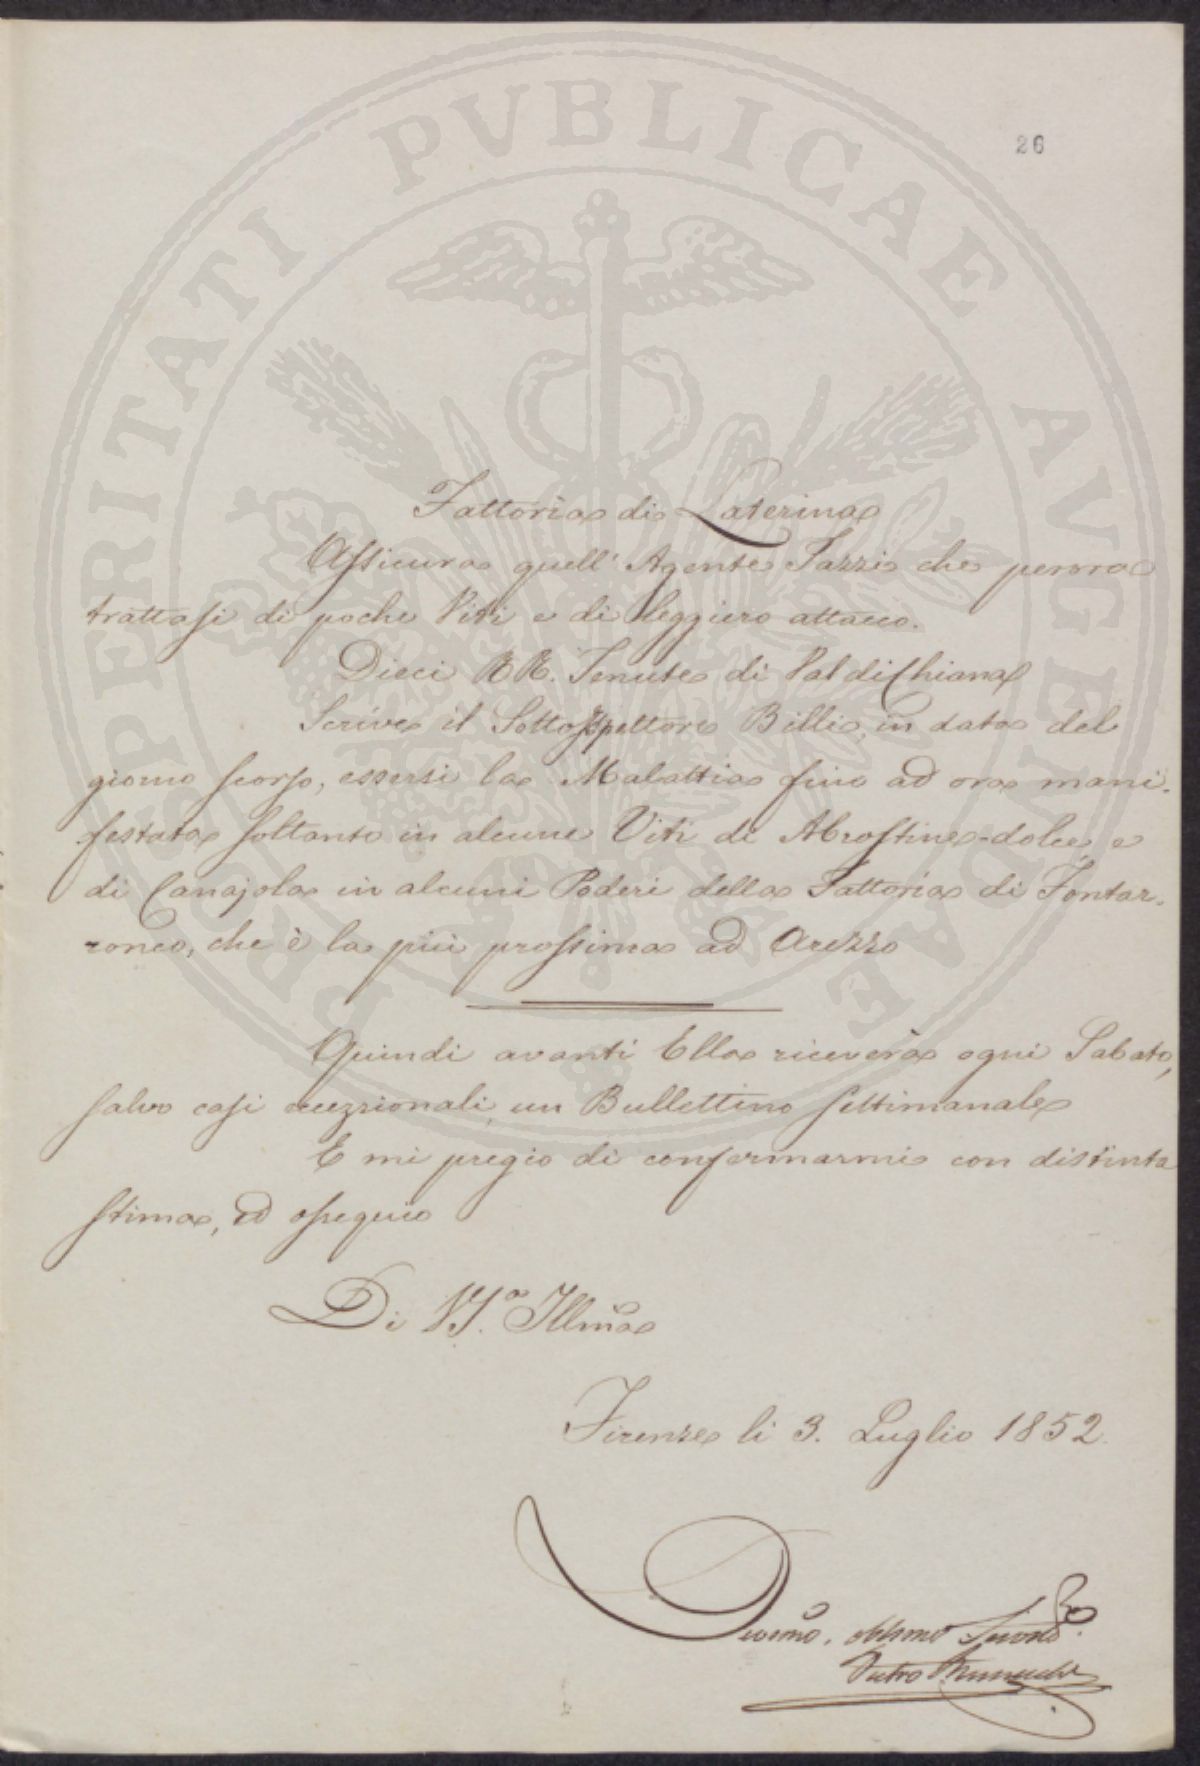 26
PROSPERITATI PVBLICAE AVGENDAE
Fattoria di Laterina
Assicura quell' Agente Tazzi che perora
trattasi di poche Viti e di leggiero attacco.
Dieci RR. Tenute di Val di Chiana
Scrive il Sottoispettore Billi, in data del
giorno scorso, essersi la Malattia fino ad ora mani-
festata soltanto in alcune Viti di Abrostine-dolce, e
di Canajola in alcuni Poderi della Fattoria di Fontar-
ronco, che è la più prossima ad Arezzo
Quindi avanti Ella riceverà ogni Sabato,
salvo casi eccezzionali, un Bullettino settimanale
E mi pregio di confermarmi con distinta
stima, ed ossequio
Di VS.a Illma
Firenze li 3. Luglio 1852.
Devmo. obblmo Servo
Pietro